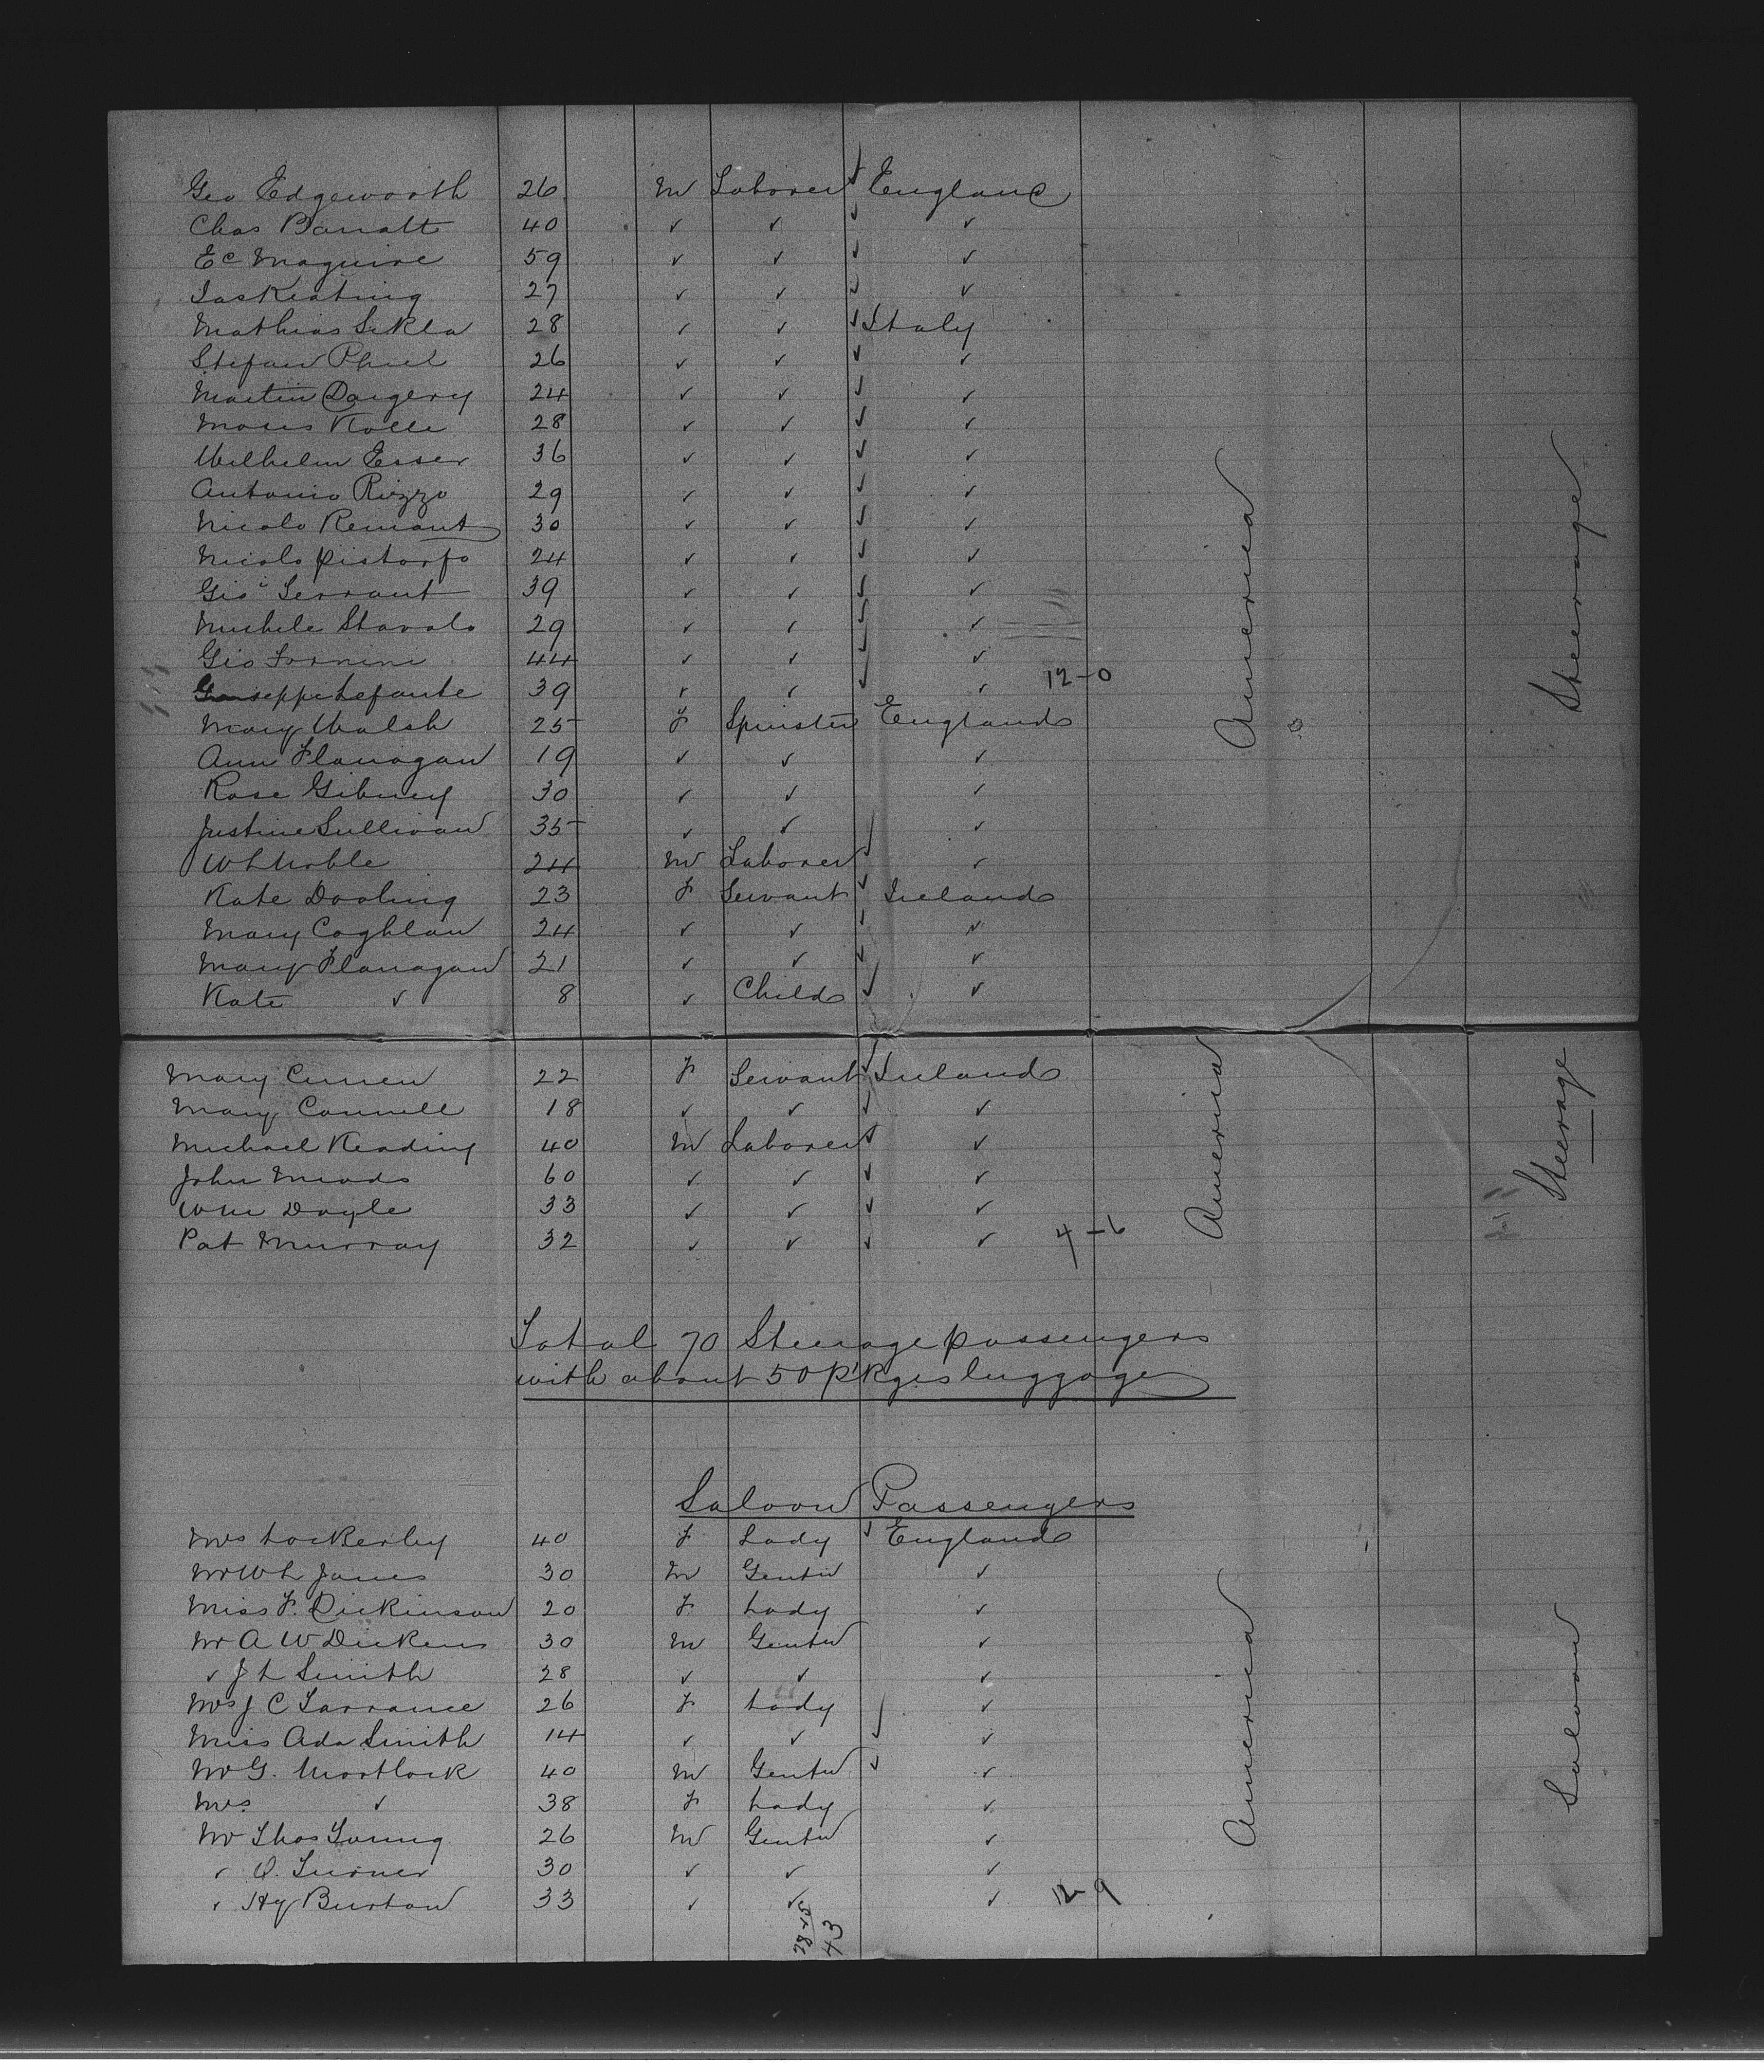 Geo Edgeworth 26 M Laborer ✓ England
Chas Barratt 40 ✓ ✓ ✓ ✓
Ed Maguire 59 ✓ ✓ ✓ ✓
Jas Keating 27 ✓ ✓ ✓ ✓
Mathias 28 ✓ ✓ ✓ Italy
Stefan 26 ✓ ✓ ✓ ✓
Martin 24 ✓ ✓ ✓ ✓
Moses Kolle 28 ✓ ✓ ✓ ✓
Wilhelm Esser 36 ✓ ✓ ✓ ✓
Antonio Rizzo 29 ✓ ✓ ✓ ✓
Nicolo 30 ✓ ✓ ✓ ✓
Nicolo 24 ✓ ✓ ✓ ✓
Gio 39 ✓ ✓ ✓ ✓
Michele Stavolo 29 ✓ ✓ ✓ ✓
Gio Fornini 44 ✓ ✓ ✓ ✓
Lefante 39 ✓ ✓ ✓ ✓ 12-0
Mary Walsh 25 F Spinster England
Ann Flanagan 19 ✓ ✓ ✓
Rose Gibney 30 ✓ ✓ ✓
Justine Sullivan 35 ✓ ✓ ✓
W L Noble 24 M Laborer ✓ ✓
Kate Dooling 23 F Servant ✓ Ireland
Mary Coghlan 24 ✓ ✓ ✓ ✓
Mary Flanagan 21 ✓ ✓ ✓ ✓
Kate ✓ 8 ✓ Child ✓ ✓
America
Steerage
Mary Curren 22 F Servant ✓ Ireland
Mary Connell 18 ✓ ✓ ✓ ✓
Michael Keading 40 M Laborer ✓ ✓
John Meads 60 ✓ ✓ ✓ ✓
Wm Doyle 33 ✓ ✓ ✓ ✓
Pat Murray 32 ✓ ✓ ✓ ✓ 4-6
America
Steerage
Total 70 Steerage passengers
with about 50 p'kges luggage
Saloon Passengers
Mrs Lockerley 40 F Lady ✓ England
Mr W L Jones 30 M Gentn ✓
Miss F. Dickinson 20 F Lady ✓
Mr A W Dickens 30 M Gentn ✓
✓ J L Smith 28 ✓ ✓ ✓
Mrs J C Torrance 26 F Lady ✓
Miss Ada Smith 14 ✓ ✓ ✓ ✓
Mr G. Mortlock 40 M Gentn ✓ ✓
Mrs ✓ 38 F Lady ✓
Mr Thos Young 26 M Gentn ✓
✓ Turner 30 ✓ ✓ ✓
✓ Hy Burton 33 ✓ ✓ ✓ 12-9
America
Saloon
28 15
43